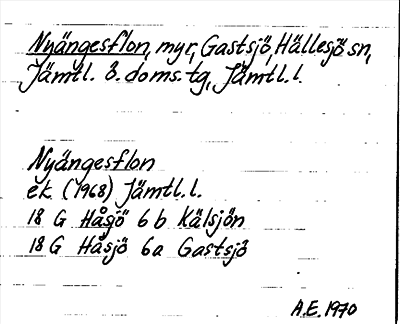 Nyängesflon, myr, Gastsjö, Hällesjö sn,
Jämtl. ö. doms. tg, Jämtl. l.
Nyängesflon
ek (1968) Jämtl. l.
18 G Håsjö 6 b Kälsjön
18 G Håsjö 6a Gastsjö
A.E. 1970